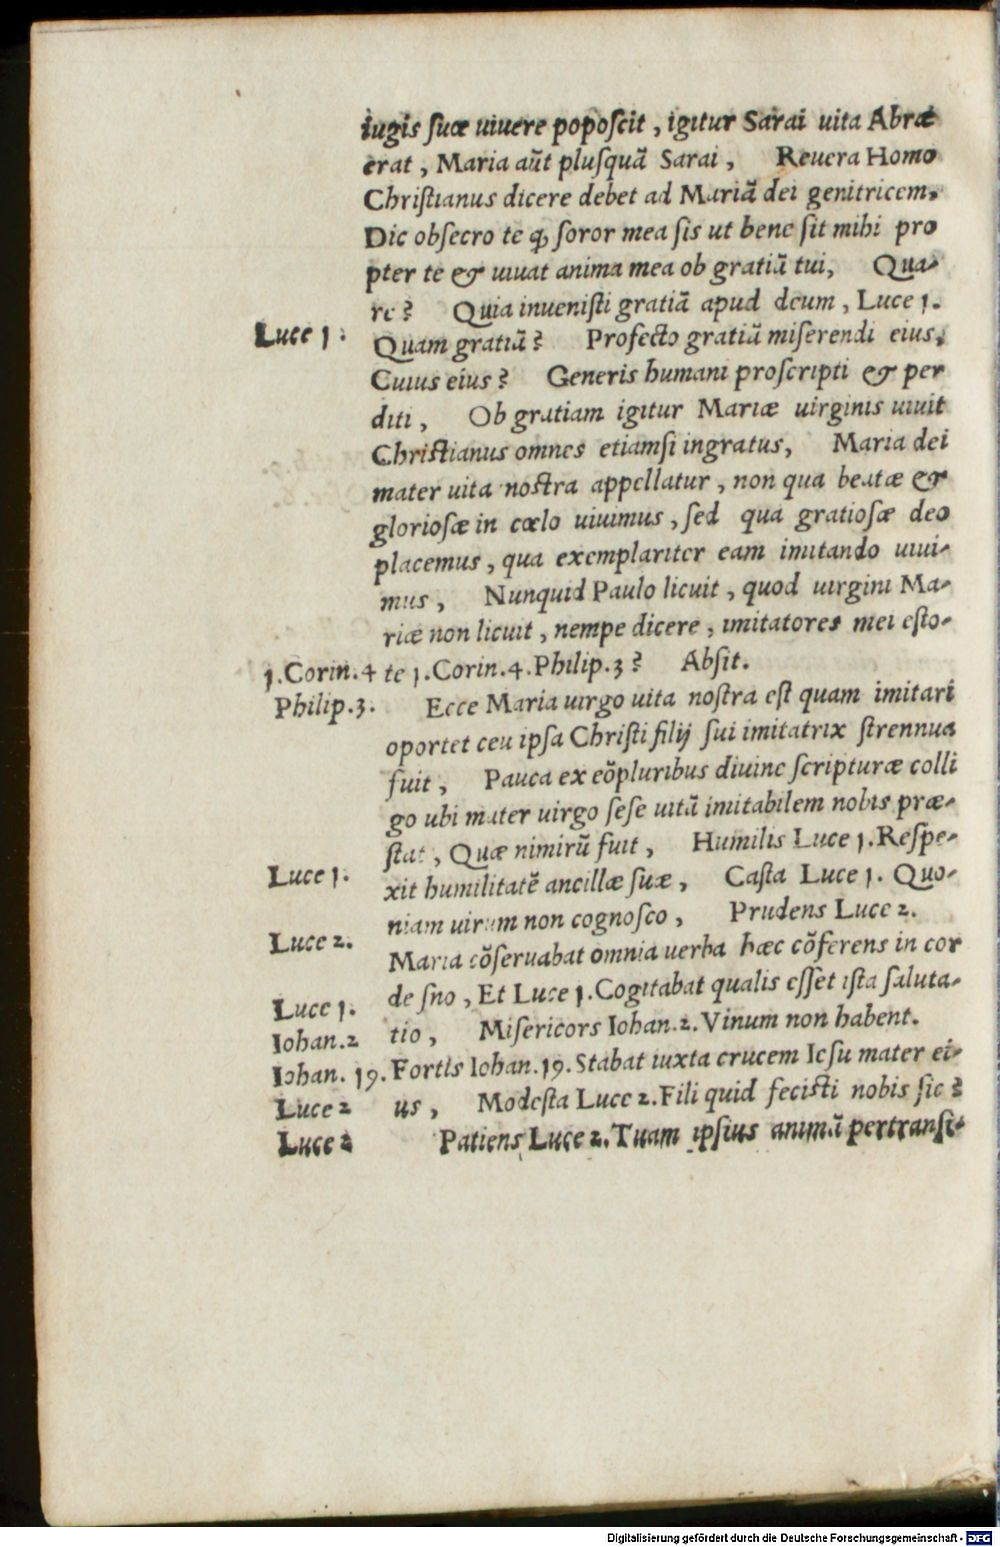 iugis suæ uiuere poposcit, igitur Sarai uita Abræ
erat, Maria aũt plusquã Sarai, Reuera Homo
Christianus dicere debet ad Mariã dei genitricem.
Dic obsecro te ꝙ soror mea sis ut bene sit mihi pro
pter te & uiuat anima mea ob gratiã tui, Qua-
re? Quia inuenisti gratiã apud deum, Luce 1.
Luce 1.
Quam gratiã? Profecto gratiã miserendi eius,
Cuius eius? Generis humani proscripti & per
diti, Ob gratiam igitur Mariæ uirginis uiuit
Christianus omnes etiamsi ingratus, Maria dei
mater uita nostra appellatur, non qua beatæ &
gloriosæ in cœlo uiuimus, sed qua gratiosæ deo
placemus, qua exemplariter eam imitando uiui-
mus, Nunquid Paulo licuit, quod uirgini Ma-
riæ non licuit, nempe dicere, imitatores mei esto-
1.Corin.4
te 1.Corin.4.Philip.3? Absit.
Philip.3.
Ecce Maria uirgo uita nostra est quam imitari
oportet ceu ipsa Christi filij sui imitatrix strennua
fuit, Pauca ex eõpluribus diuine scripturæ colli
go ubi mater uirgo sese uitã imitabilem nobis præ-
stat, Quæ nimirũ fuit, Humilis Luce 1. Respe-
Luce 1.
xit humilitatẽ ancillæ suæ, Casta Luce 1. Quo-
niam uirum non cognosco, Prudens Luce 2.
Luce 2.
Maria cõseruabat omnia uerba hæc cõferens in cor
de sno, Et Luce 1. Cogitabat qualis esset ista saluta-
Luce 1.
tio, Misericors Iohan.2. Vinum non habent.
Iohan.2
Fortis Iohan.19. Stabat iuxta crucem Iesu mater ei-
Iohan. 19.
us, Modesta Luce 2. Fili quid fecisti nobis sic?
Luce 2
Patiens Luce 2. Tuam ipsius animã pertransi-
Luce 2
Digitalisierung gefördert durch die Deutsche Forschungsgemeinschaft - DFG